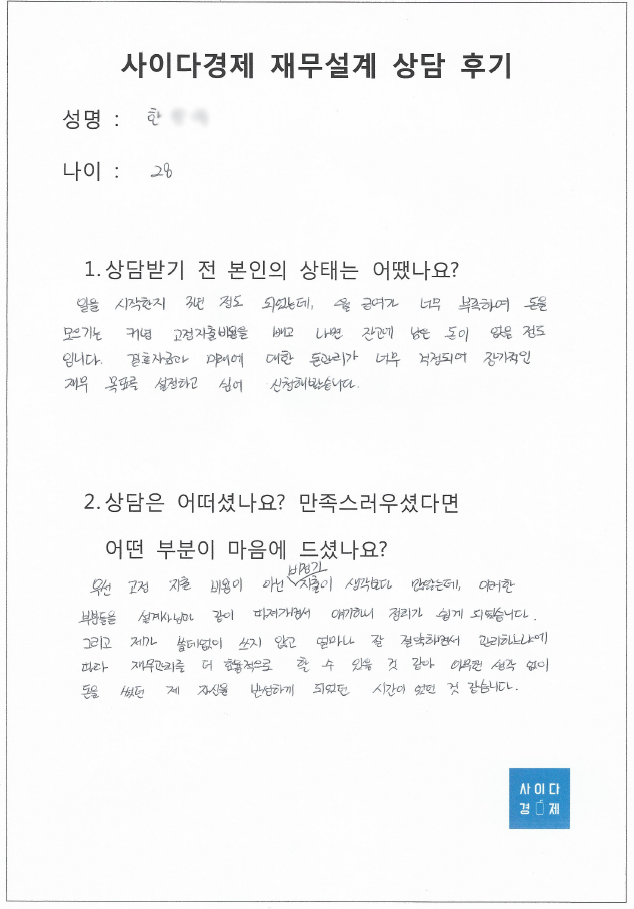 사이다경제 재무설계 상담 후기
성명 : 한
나이 : 28
1. 상담받기 전 본인의 상태는 어땠나요?
일을 시작한지 3년 정도 되었는데, 월 급여가 너무 부족하여 돈을
모으기는 커녕 고정지출비용을 빼고 나면 잔고에 남은 돈이 없을 정도
입니다. 결혼자금과 미래에 대한 돈관리가 너무 걱정되어 장기적인
재무 목표를 설정하고 싶어 신청해봤습니다.
2. 상담은 어떠셨나요? 만족스러우셨다면
어떤 부분이 마음에 드셨나요?
우선 고정 지출 비용이 아닌 비정기 지출이 생각보다 많았는데, 이러한
부분들을 설계사님과 같이 따져가면서 얘기하니 정리가 쉽게 되었습니다.
그리고 제가 쓸데없이 쓰지 않고 얼마나 잘 절약하면서 관리하느냐에
따라 재무관리를 더 효율적으로 할 수 있을 것 같아 아무런 생각 없이
돈을 썼던 제 자신을 반성하게 되었던 시간이 었던 것 같습니다.
사이다
경제